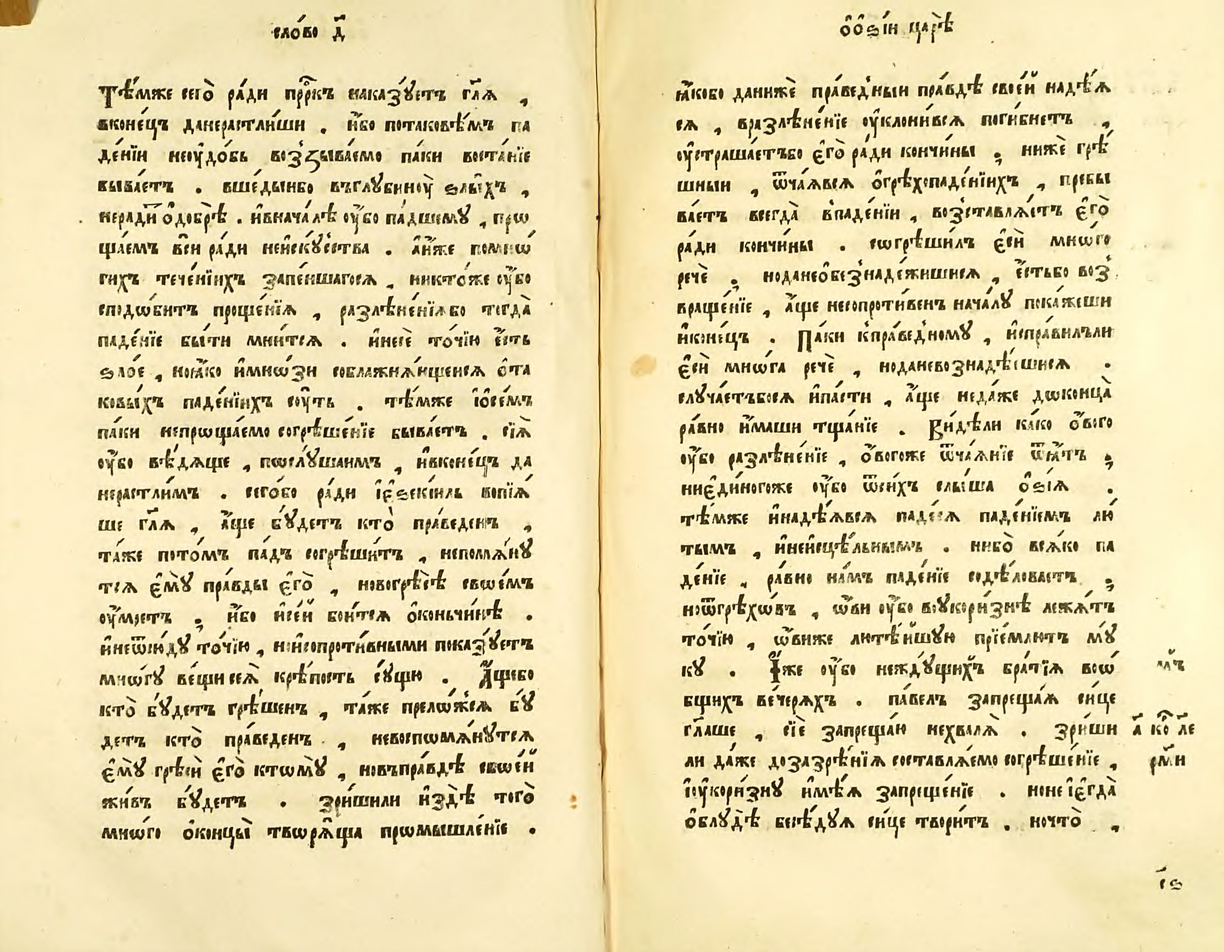 сло́во д҃
Тѣ́мже сего̀ ра́ди прⷪ҇ркъ наказꙋ́етъ гл҃ѧ ,
вконе́цъ данерастлиши . и҆́бо потаковѣ́мъ па
де́нїи неꙋдо́бь воз̾зыва́емо па́ки воста́нїе
быва́етъ . вше́дыибо въглꙋбинꙋ̀ ѕлы́хъ ,
неради́тъ ѻ҆до́брѣ . и҆внача́лѣ ᲂу҆́бо па́дшемꙋ , прѡ
ща́емъ всѝ ра́ди неи҆скꙋ́сства . а҆и҆́же помнѡ́
гихъ тече́нїихъ запе́ншагосѧ , никто́же ᲂу҆́бо
сподѡ́битъ проще́нїѧ , разлѣне́нїѧбо тогда̀
паде́нїе бы́ти мни́тсѧ . и҆несѐ то́чїю є҆́сть
ѕло́е , ноꙗ҆́ко и҆мнѡ́зи соблажнѧ́ющеисѧ ѻ҆та
ковы́хъ паде́нїихъ сꙋ́ть . тѣ́мже і҆ѻ҆се́мъ
па́ки непрѡща́емо согрѣше́нїе быва́етъ . сїѧ̀
ᲂу҆́бо вѣ́дѧще , послꙋ́шаимъ , и҆вконе́цъ да
нерастли́мъ . сего́бо ра́ди і҆є҆ѕекі́иль вопїѧ́
ше гл҃ѧ , а҆́ще бꙋ́детъ кто̀ пра́веденъ ,
та́же пото́мъ па́дъ согрѣши́тъ , непомѧнꙋ́
тсѧ є҆мꙋ̀ пра́вды є҆гѡ̀ , новогрѣсѣ̀ свѡе́мъ
ᲂу҆́мретъ . и҆́бо и҆се́й бои́тсѧ ѻ҆коньчи́нѣ .
и҆неѿю́дꙋ то́чїю , ноисопроти́вными показꙋ́етъ
мно́гꙋ ве́щи сеѧ̀ крѣ́пость сꙋ́щꙋ . А҆́щебо
кто̀ бꙋ́детъ грѣ́шенъ , та́же прело́жсѧ бꙋ́
детъ кто̀ пра́веденъ , невоспомѧнꙋ́тсѧ
є҆мꙋ̀ грѣсѝ є҆гѡ̀ ктомꙋ̀ , новъпра́вдѣ свѡе́й
жи́въ бꙋ́детъ . зри́шили и҆здѣ̀ того̀
мно́го ѻ҆концы̀ творѧ́ща прѡмышле́нїе .
ѻ҆ ѻ҆ѕі́и царѣ̀
ꙗ҆́кобо дани́же пра́ведныи пра́вдѣ свое́й надѣ́ѧ
сѧ , вразлѣне́нїе ᲂу҆клони́всѧ поги́бнетъ ,
ᲂу҆страша́етъбо є҆гѡ̀ ра́ди кончи́ны , ниже грѣ́
шныи , ѿча́ѧвсѧ ѻ҆грѣхопаде́нїихъ , пребы
ва́етъ всегда̀ впаде́нїи , возставлѧ́етъ є҆гѡ̀
ра́ди кончи́ны . согрѣши́лъ є҆сѝ мно́го
речѐ , ноданеѻ҆без̾наде́жишисѧ , є҆́стьбо воз̾
враще́нїе , а҆́ще несопроти́венъ нача́лꙋ пока́жеши
и҆коне́цъ . Па́ки кпра́ведномꙋ , и҆спра́вилъли
є҆сѝ мнѡ́га речѐ , ноданевознадѣ́ешисѧ .
слꙋча́етъбосѧ и҆па́сти , а҆́ще неда́же доконца̀
ра́вно и҆́маши тща́нїе . Ви́дѣли ка́ко ѻ҆́вого
ᲂу҆́бо разлѣне́нїе , ѻ҆́вогоже ѿча́ѧнїе ѿѧ́тъ ,
ниє҆ди́ногоже ᲂу҆́бо ѿси́хъ слы́ша ѻ҆ѕі́ѧ .
тѣ́мже и҆надѣ́ѧвсѧ паде́сѧ паде́нїемъ лю́
тымъ , и҆неисцѣ́льнымъ . нибо̀ всѧ́ко па
де́нїе , ра́вно на́мъ паде́нїе содѣ́ловаетъ ,
ноѿгрѣхѡ́въ , ѡ҆́ви ᲂу҆́бо вᲂу҆кори́знѣ лежа́тъ
то́чїю , ѡ҆́виже лютѣ́йшꙋю прїе́млютъ мꙋ́
кꙋ . И҆́же ᲂу҆́бо нежд́ꙋщихъ бра́тїѧ воѡ́
бщихъ вече́рѧхъ . па́велъ запреща́ѧ си́це
гл҃аше , сїе́ запреща́ю нехвалѧ̀ . зри́ши
ли да́же дозазрѣ́нїѧ составлѧ́емо согрѣше́нїе ,
і҆ᲂу҆кори́знꙋ и҆мѣ́ѧ запреще́нїе . ноне і҆є҆гда̀
ѻ҆блꙋ́дѣ бесѣ́дꙋѧ си́це твори́тъ . ночто̀ ,